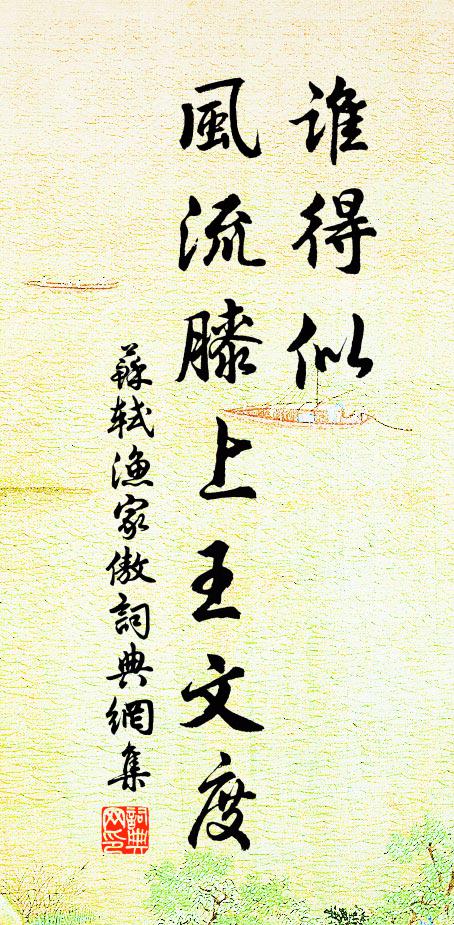 誰得似
風流膝上王文度
蘇軾漁家傲詞典網集
詞典網印